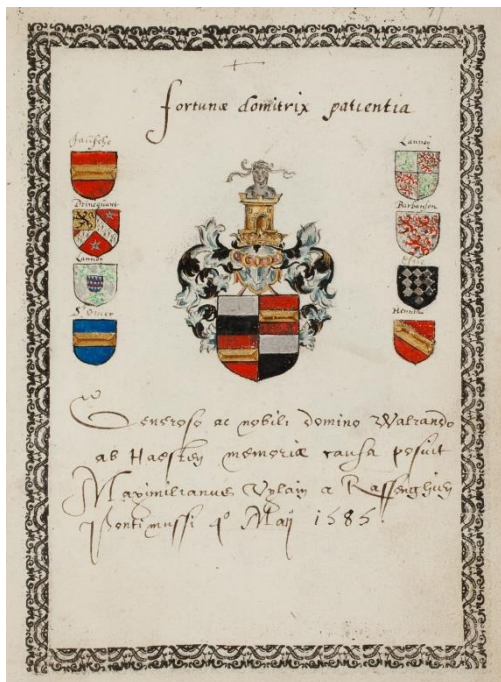 fortunæ domitrix patientia
Jausche
Lannoy
Barbanson
Lannoy
S. Omer
Hennin
Generoso ac nobili domino Walrando
ab Haesten memoriæ causa posuit
Maximilianus Vylain a Rassenghien
Pontimussi 4º Maij 1585